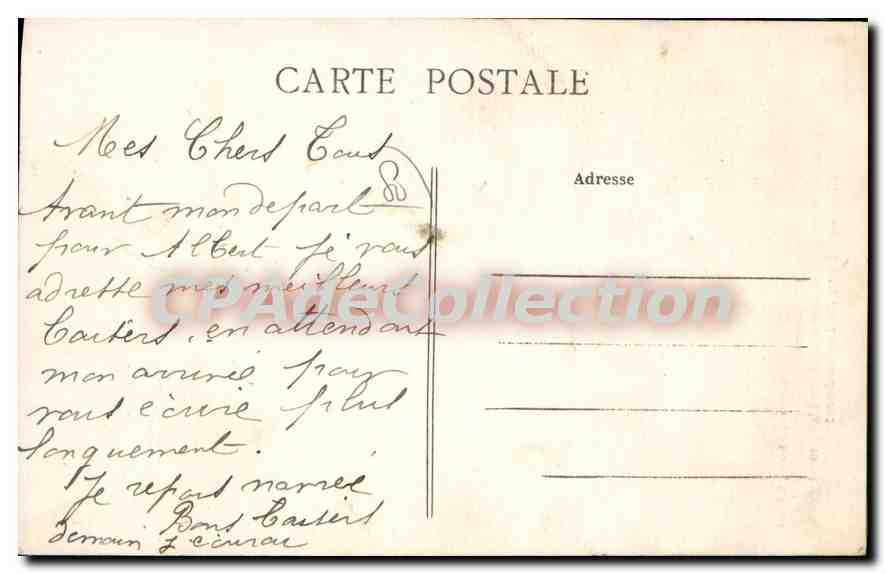 CARTE POSTALE
Mes Chers Tous
80
Adresse
Avant mon depart
pour Albert je vous
adresse mes meilleurs
CPAdeCollection
baisers, en attendant
mon arrivée pour
vous écrire plus
longuement.
Je repars
Bons baisers
demain j